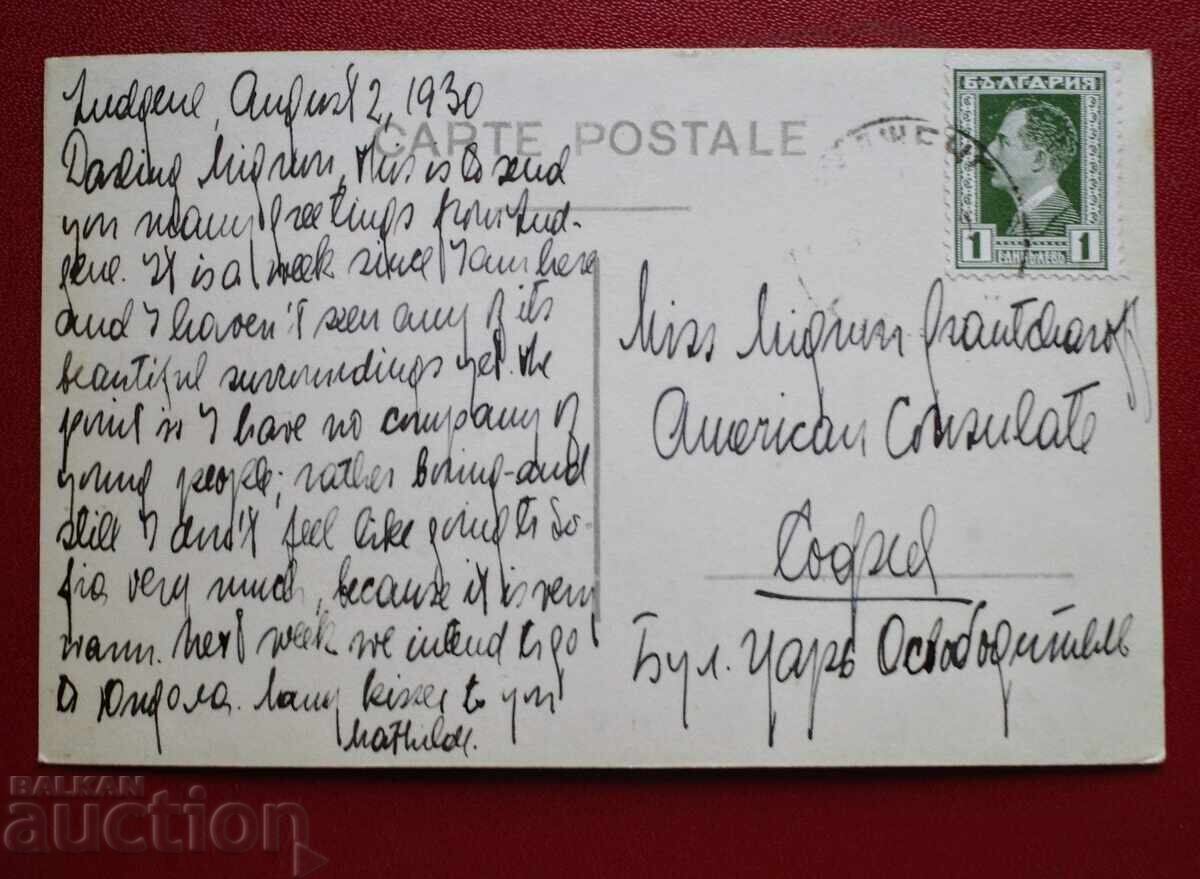 Ludgene, August 2, 1930
CARTE POSTALE
Darling Mignon, this is to send
you many greetings from Lud-
gene. It is a week since I am here
and I haven't seen any of its
beautiful surroundings yet. The
point is I have no company of
young people; rather boring - and
still I don't feel like going to So-
fia very much, because it is very
warm. Next week we intend to go
to Юндола. Many kisses to you
Mathilde.
БЪЛГАРИЯ
1 ЕДИНЪ ЛЕВЪ 1
Miss Mignon
American Consulate
София
Бул. Царь Освободитель
BALKAN
auction